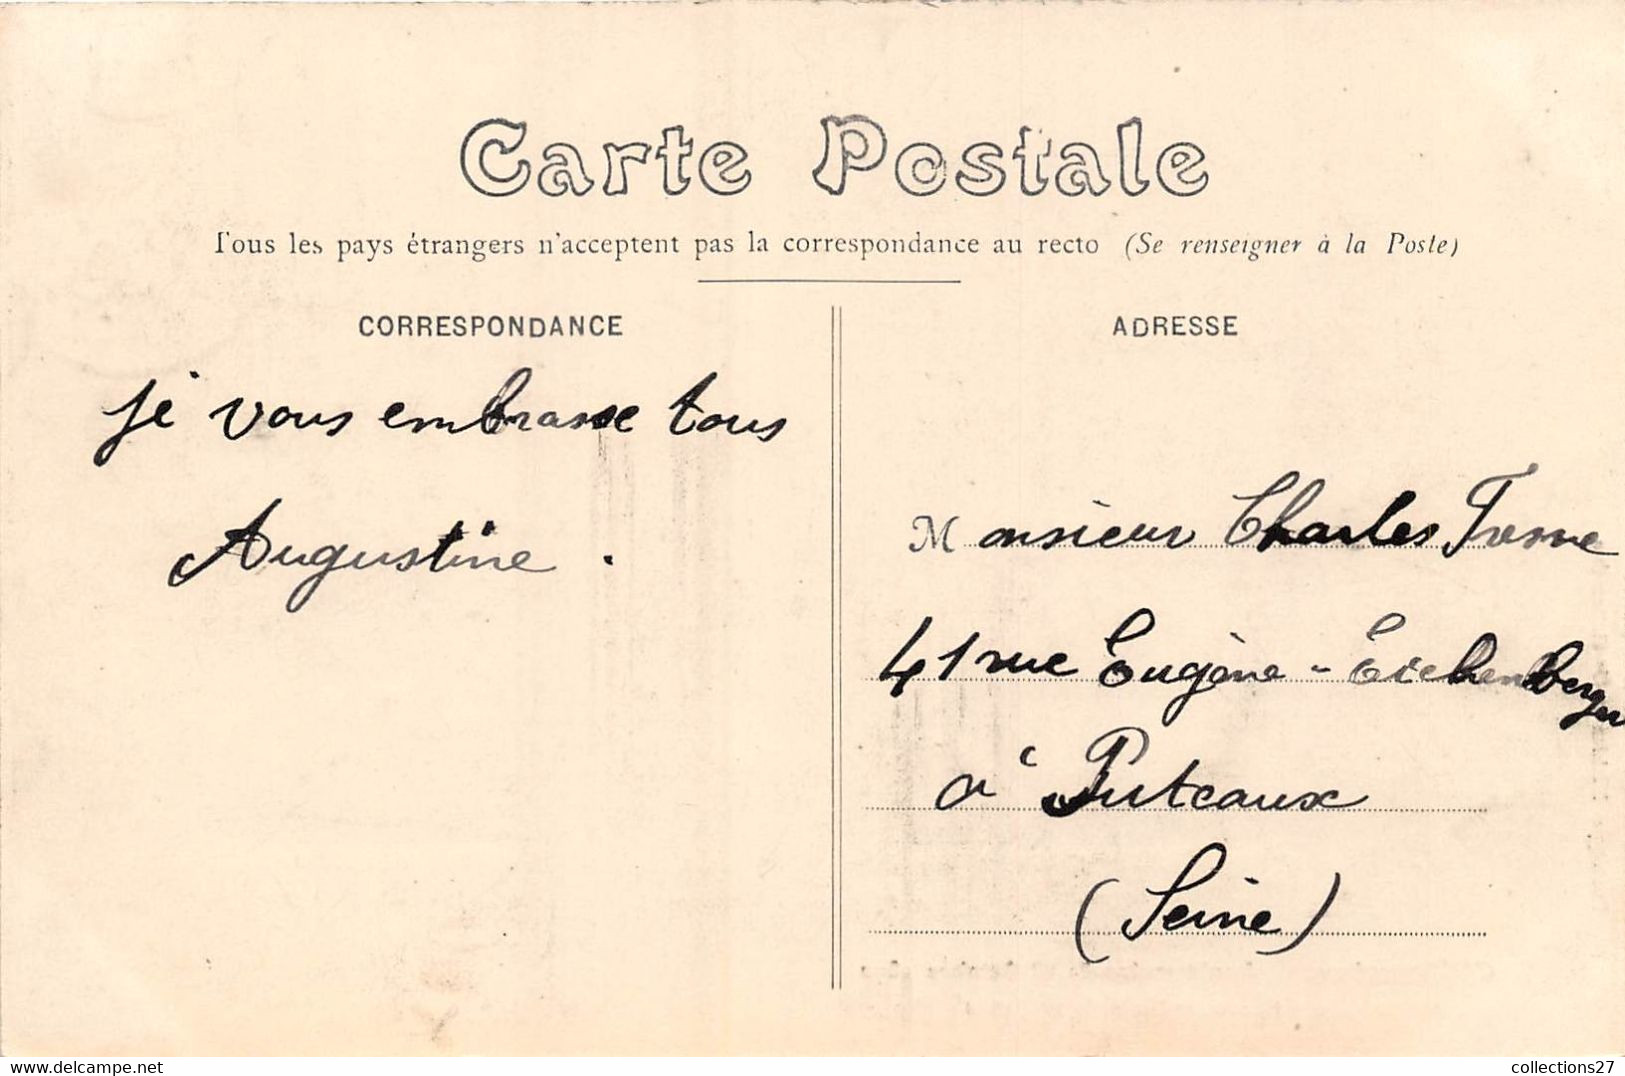 Carte Postale
Tous les pays étrangers n'acceptent pas la correspondance au recto (Se renseigner à la Poste)
CORRESPONDANCE
ADRESSE
je vous embrasse tous
Augustine .
Monsieur Charles
41 rue Eugène - Eichenberger
à Puteaux
(Seine)
collections27